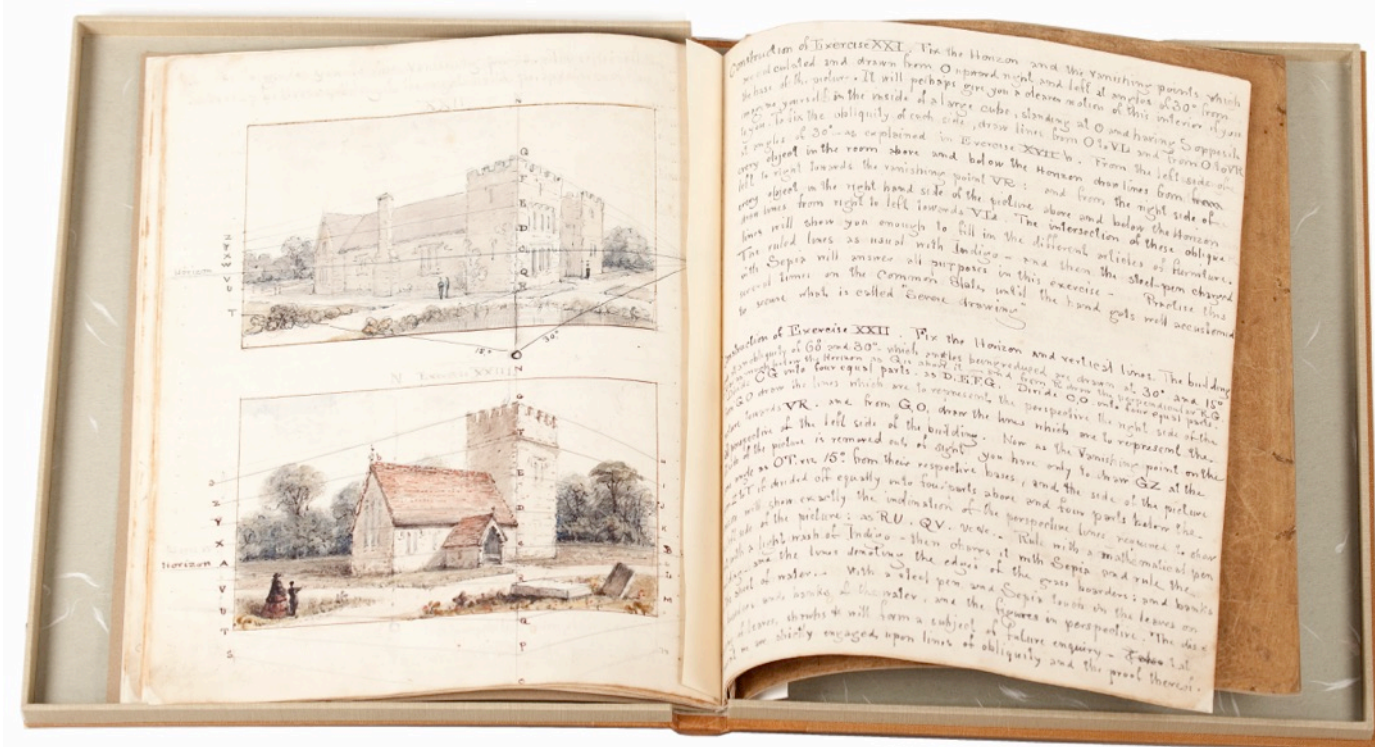 XXII
Horizon
Z
Y
X
W
V
U
T
G
F
E
D
C
Q
R
15°
30°
O
N
N
XXIII
Horizon
Z
Y
X
A
V
U
T
S
G
F
E
D
C
Q
P
Construction of Exercise XXI. Fix the Horizon and the vanishing points which
are calculated and drawn from O upward right and left at angles of 30° from
the base of the picture. It will perhaps give you a clearer notion of this interior, if you
imagine yourself in the inside of a large cube, standing at O and having 3 opposite
to you. To fix the obliquity of each side, draw lines from O to VL and from O to VR
at angles of 30° as explained in Exercise XVII b. From the left side of
every object in the room above and below the Horizon draw lines from
left to right towards the vanishing point VR: and from the right side of
every object in the right hand side of the picture above and below the Horizon
draw lines from right to left towards VL. The intersection of these oblique
lines will show you enough to fill in the different articles of furniture.
The ruled lines as usual with Indigo - and then the steel-pen charged
with Sepia will answer all purposes in this exercise - Practise this
several times on the Common Slate, until the hand gets well accustomed
to secure what is called "Severe drawing"
Construction of Exercise XXII. Fix the Horizon and vertical lines. The building
at an obliquity of 60 and 30° which angles being reduced are drawn at 30° and 15°
as much below the Horizon as Q is above it - and from the perpendicular R.G
Divide CG into four equal parts, as D.E.F.G. Divide C.O. into four equal parts.
G.O draw the lines which are to represent the perspective the right side of the
towards VR. and from G.O, draw the lines which are to represent the
perspective of the left side of the building. Now as the vanishing point on the
side of the picture is removed out of sight, you have only to draw GZ at the
angle as OT. viz 15° from their respective bases, and the side of the picture
ZT if divided off equally into four parts above and four parts below the
will show exactly the inclination of the perspective lines required to show
side of the picture; as R.U. Q.V. &c &c. Rule with a mathematical pen
with a light wash of Indigo - then charge it with Sepia, and rule the
and the lines denoting the edges of the grass boarders; and banks
sheet of water. With a steel pen and Sepia touch in the leaves on
banks of the water, and the figures in perspective. The
of leaves, shrubs &c will form a subject of future enquiry -
strictly engaged upon lines of obliquity and the proof thereof.